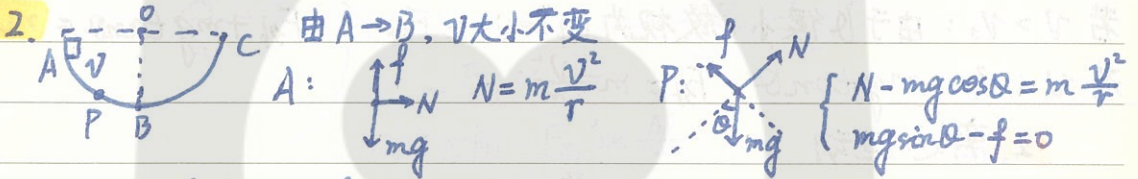 2. O 由A→B, v大小不变
A C v P B
A: f N mg N=m v²/r P: f N θ mg { N-mgcosθ=m v²/r
mgsinθ-f=0